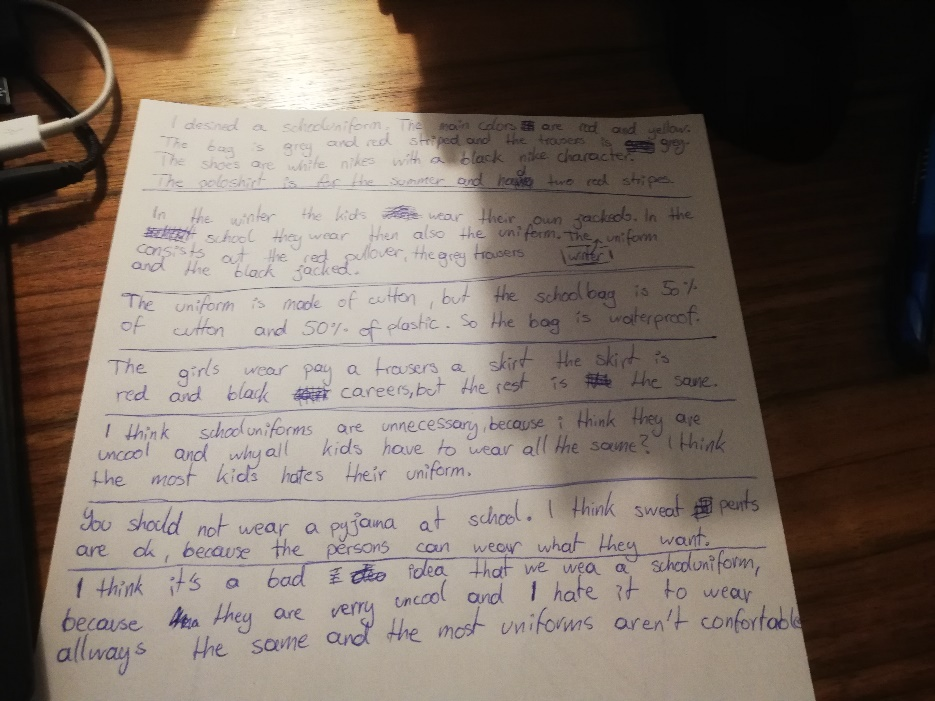 I desined a schooluniform. The main colors are red and yellow.
The bag is grey and red striped and the trousers is grey.
The shoes are white nikes with a black nike character.
The poloshirt is for the summer and has two red stripes
In the winter the kids wear their own jackeds. In the
school they wear then also the uniform. The uniform
winter
consists out the red pullover, the grey trousers
and the black jacked.
The uniform is made of cutton, but the schoolbag is 50%
of cutton and 50% of plastic. So the bag is waterproof.
The girls wear pay a trousers a skirt the skirt is
red and black careers, but the rest is the same.
I think schooluniforms are unnecessary, because i think they are
uncool and why all kids have to wear all the same? I think
the most kids hates their uniform.
You should not wear a pyjama at school. I think sweat pents
are ok, because the persons can wear what they want.
I think it's a bad idea that we wea a schooluniform,
because they are verry uncool and I hate it to wear
allways the same and the most uniforms aren't confortable